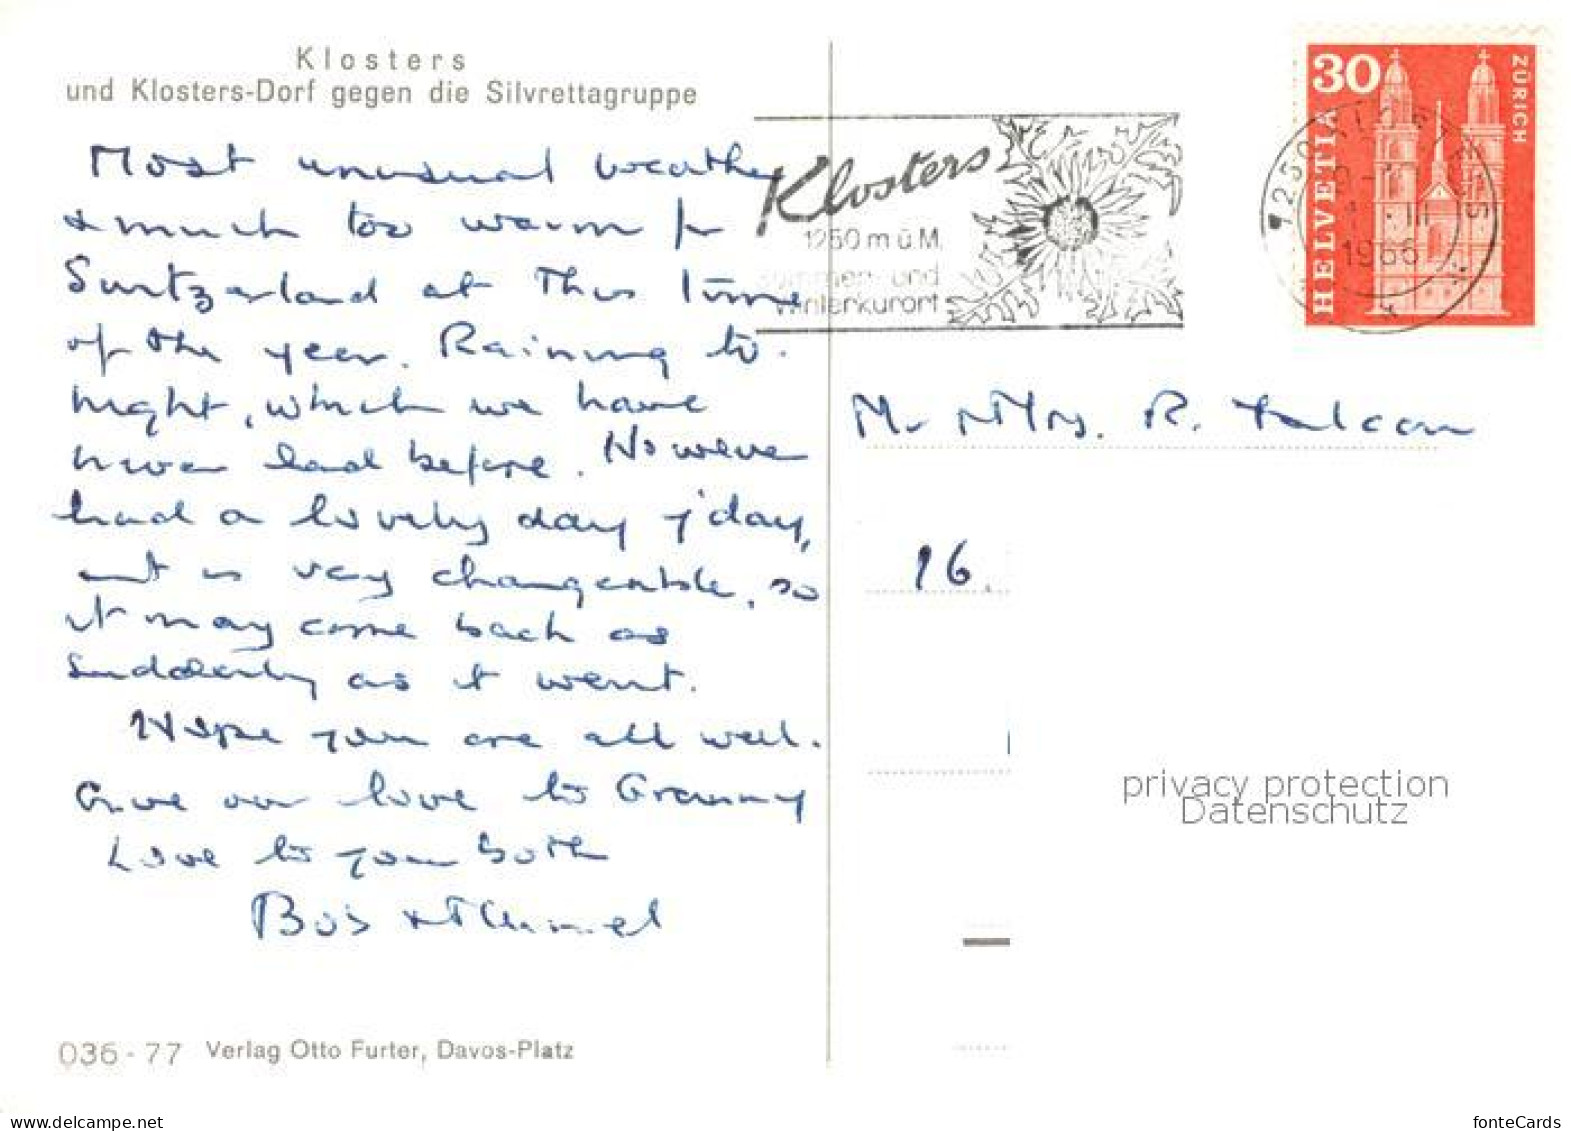 Klosters
und Klosters-Dorf gegen die Silvrettagruppe
Most unusual weather
& much too warm for
Switzerland at this time
of the year. Raining to-
night, which we have
never had before. However
had a lovely day y'day,
but is very changeable, so
it may come back as
suddenly as it went.
Hope you are all well.
Give our love to Granny
Love to you both
Bob &
036-77 Verlag Otto Furter, Davos-Platz
Klosters
1250 m ü. M.
Sommer- und
Winterkurort
30
ZÜRICH
HELVETIA
7250 KLOSTERS
III
1966
Mr & Mrs. R. Falcon
16.
privacy protection
Datenschutz
fonteCards